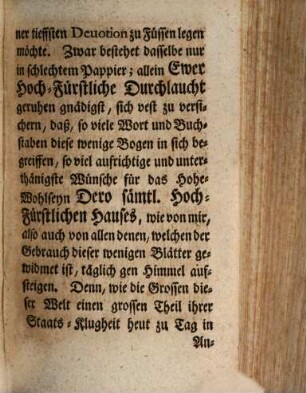 ner tieffsten Devotion zu Füssen legen
möchte. Zwar bestehet dasselbe nur
in schlechtem Pappier; allein Ewer
Hoch-Fürstliche Durchlaucht
geruhen gnädigst, sich vest zu versi-
chern, daß, so viele Wort und Buch-
staben diese wenige Bogen in sich be-
greiffen, so viel aufrichtige und unter-
thänigste Wünsche für das Hohe-
Wohlseyn Dero sämtl. Hoch-
Fürstlichen Hauses, wie von mir,
also auch von allen denen, welchen der
Gebrauch dieser wenigen Blätter ge-
widmet ist, täglich gen Himmel auf-
steigen. Denn, wie die Grossen die-
ser Welt einen grossen Theil ihrer
Staats-Klugheit heut zu Tag in
An-